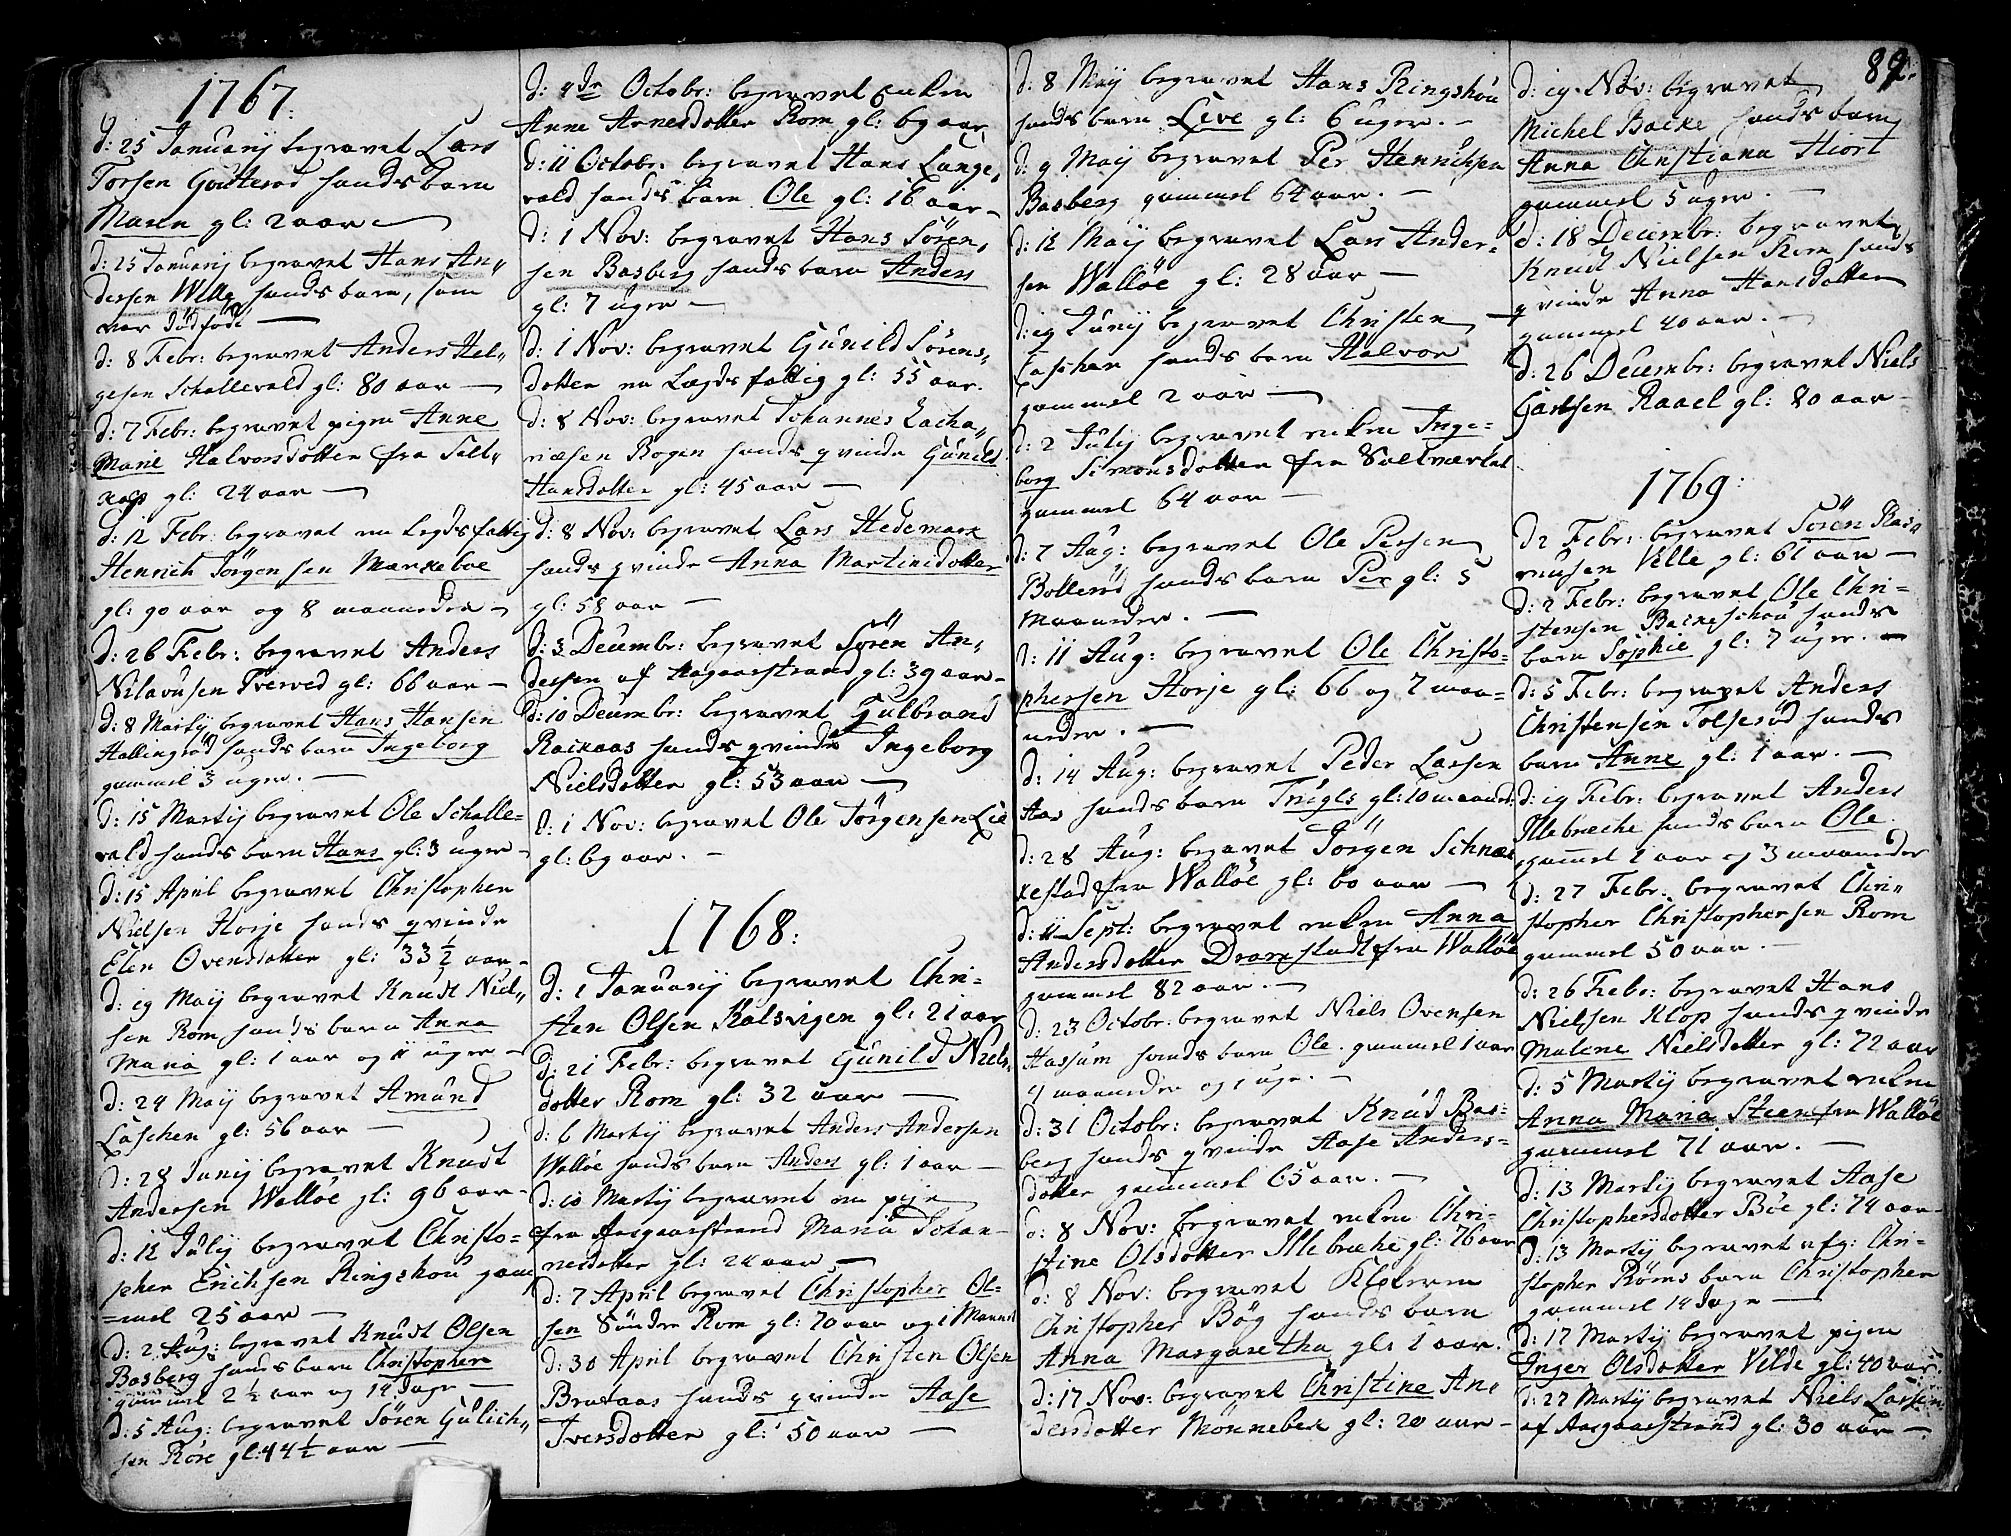 1767.
d: 25 Januarij begravet Lars
Torsen Gouterød hands barn
Maren gl: 2 aar
d: 25 Januarij begravet Hans An„
dersen Welle hands barn, som
var dødfødt
d: 8 Febr: begravet Anders Hel„
gesen Schallevald gl: 80 aar
d: 7 Febr: begravet pigen Anne
Marie Halvorsdotter fra Salt„
kop gl: 24 aar
d: 12 Febr: begravet en Legdsfattig
Henrich Jörgensen Markeboe
gl: 90 aar og 8 maaneder
d: 26 Febr: begravet Anders
Nilavusen Tverved gl: 66 aar
d: 8 Martij begravet Hans Hansen
Hallingrød hands barn Ingeborg
gammel 3 uger.
d: 15 Martij begravet Ole Schalle=
vald hands barn Hans gl: 3 uger
d: 15 April begravet Christopher
Nielsen Horje hands qvinde
Elen Ovensdotter gl: 33 ½ aar
d: 19 Maij begravet Knudt Niel„
sen Rom hands barn Anna
Maria gl: 1 aar og 11 uger
d: 24 Maij begravet Amund
Laschen gl: 56 aar
d: 28 Junij begravet Knudt
Andersen Walløe gl: 96 aar
d: 12 Julij begravet Christo=
pher Erichsen Ringshou gam
=mel 25 aar
d: 2 Aug: begravet Knudt Olsen
Basberg hands barn Christopher
gammel 2 ½ aar og 14 dage
d: 5 Aug: begravet Sören Gulich„
sen Röre gl: 44 ½ aar
d: 4de Octobr: begravet enken
Anne Arnesdotter Rom gl: 69 aar
d: 11 Octobr: begravet Hans Lange„
vald hands barn Ole gl: 16 aar
d: 1 Nov: begravet Hans Sören„
sen Basberg hands barn Anders
gl: 7 uger
d: 1 Nov: begravet Gunild Sörens„
dotter en Lægdsfattig gl: 55 aar.
d: 8 Nov: begravet Johannes Zacha„
riæsen Rogen hands qvinde Gunild
Hansdotter gl: 45 aar
d: 8 Nov: begravet Lars Hedemark
hands qvinde Anna Martinsdotter
gl: 58 aar
d: 3 Decembr: begravet Sören An„
dersen af Aagaarstrand gl: 39 aar
d: 10 Decembr: begravet Gulbrand
Rackaas hands qvinde Ingeborg
Nielsdotter gl: 53 aar
d: 1 Nov: begravet Ole Jörgensen Lie
gl: 69 aar.
1768:
d: 1 Januarij begravet Chri=
sten Olsen Kalsvigen gl: 21 aar
d: 21 Febr: begravet Gunild Niels„
dotter Rom gl: 32 aar
d: 6 Martij begravet Anders Andersen
Walløe hands barn Anders gl: 1 aar
d: 10 Martij begravet en pige
fra Aasgaarstrand Maria Johan=
nesdotter gl: 24 aar
d: 7 April begravet Christopher Ol=
sen Söndre Rom gl: 70 aar og 1 Maaned
d: 30 April begravet Christen Olsen
Brataas hands qvinde Aase
Iversdotter gl: 50 aar
d: 8 Maij begravet Hans Ringshou
hands barn Live gl: 6 uger.
d: 9 Maij begravet Per Henrichsen
Basberg gammel 64 aar.
d: 12 Maij begravet Lars Ander=
sen Walløe gl: 28 aar
d: 19 Junij begravet Christen
Laschen hands barn Halvor
gammel 2 aar
d: 2 Julij begravet enken Inge=
borg Simonsdotter fra Saltværket
gammel 64 aar
d: 7 Aug: begravet Ole Persen
Bollerød hands barn Per gl: 5
maaneder.
d: 11 Aug: begravet Ole Christo=
phersen Horje gl: 66 og 7 maa=
neder.
d: 14 Aug: begravet Peder Larsen
Aas hands barn Trugls gl: 10 maaned.
d: 28 Aug: begavet Jörgen Schnec
kestad fra Walløe gl: 60 aar
d: 11 Sept: begravet enken Anna
Andersdotter Dramstadt fra Walløe
gammel 82 aar.
d: 23 Octobr: begravet Niels Ovensen
Hassum hands barn Ole gammel 1 aar
4 maaneder og 1 uge.
d: 31 Octobr: begravet Knud Bas=
berg hands qvinde Aase Anders=
dotter gammel 65 aar.
d: 8 Nov: begravet enken Chri=
stine Olsdotter Illebreche gl: 76 aar
d: 8 Nov: begravet Klokeren
Christopher Bög hands barn
Anna Margaretha gl: 1 aar.
d: 17 Nov: begravet Christine An=
dersdotter Mönneber gl: 20 aar
82.
d: 19 Nov: begravet
Michel Backe hands barn
Anna Christiana Hiort
gammel 5 uger.
d: 18 Decembr: begravet
Knudt Nielsen Rom hands
qvinde Anna Hansdotter
gammel 40 aar.
d: 26 Decembr: begravet Niels
Carlsen Raael gl: 80 aar
1769:
d: 2 Febr: begravet Sören Ras„
musen Velle gl: 61 aar
d: 2 Febr: begravet Ole Chri=
stensen Backeschou hands
barn Sophie gl: 7 uger.
d: 5 Febr: begravet Anders
Christensen Tolserød hands
barn Anne gl: 1 aar.
d: 19 Febr: begravet Anders
Illebreche hands barn Ole
gammel 1 aar og 3 maaneder
d: 27 Febr: begravet Chri„
stopher Christophersen Rom
gammel 50 aar.
d: 26 Febr: begravet Hans
Nielsen Klop hands qvinde
Malene Nielsdotter gl: 72 aar
d: 5 Martij begravet enken
Anna Maria Steen fra Walløe
gammel 71 aar.
d: 13 Martij begravet Aase
Christophersdotter Böe gl: 74 aar
d: 13 Martij begravet afg: Chri=
stopher Röms barn Christopher
gammel 14 dage
d: 17 Martij begravet pigen
Inger Olsdotter Velde gl: 40 aar
d: 27 Martij begravet Niels Larsen
af Aasgaarstrand gl: 30 aar